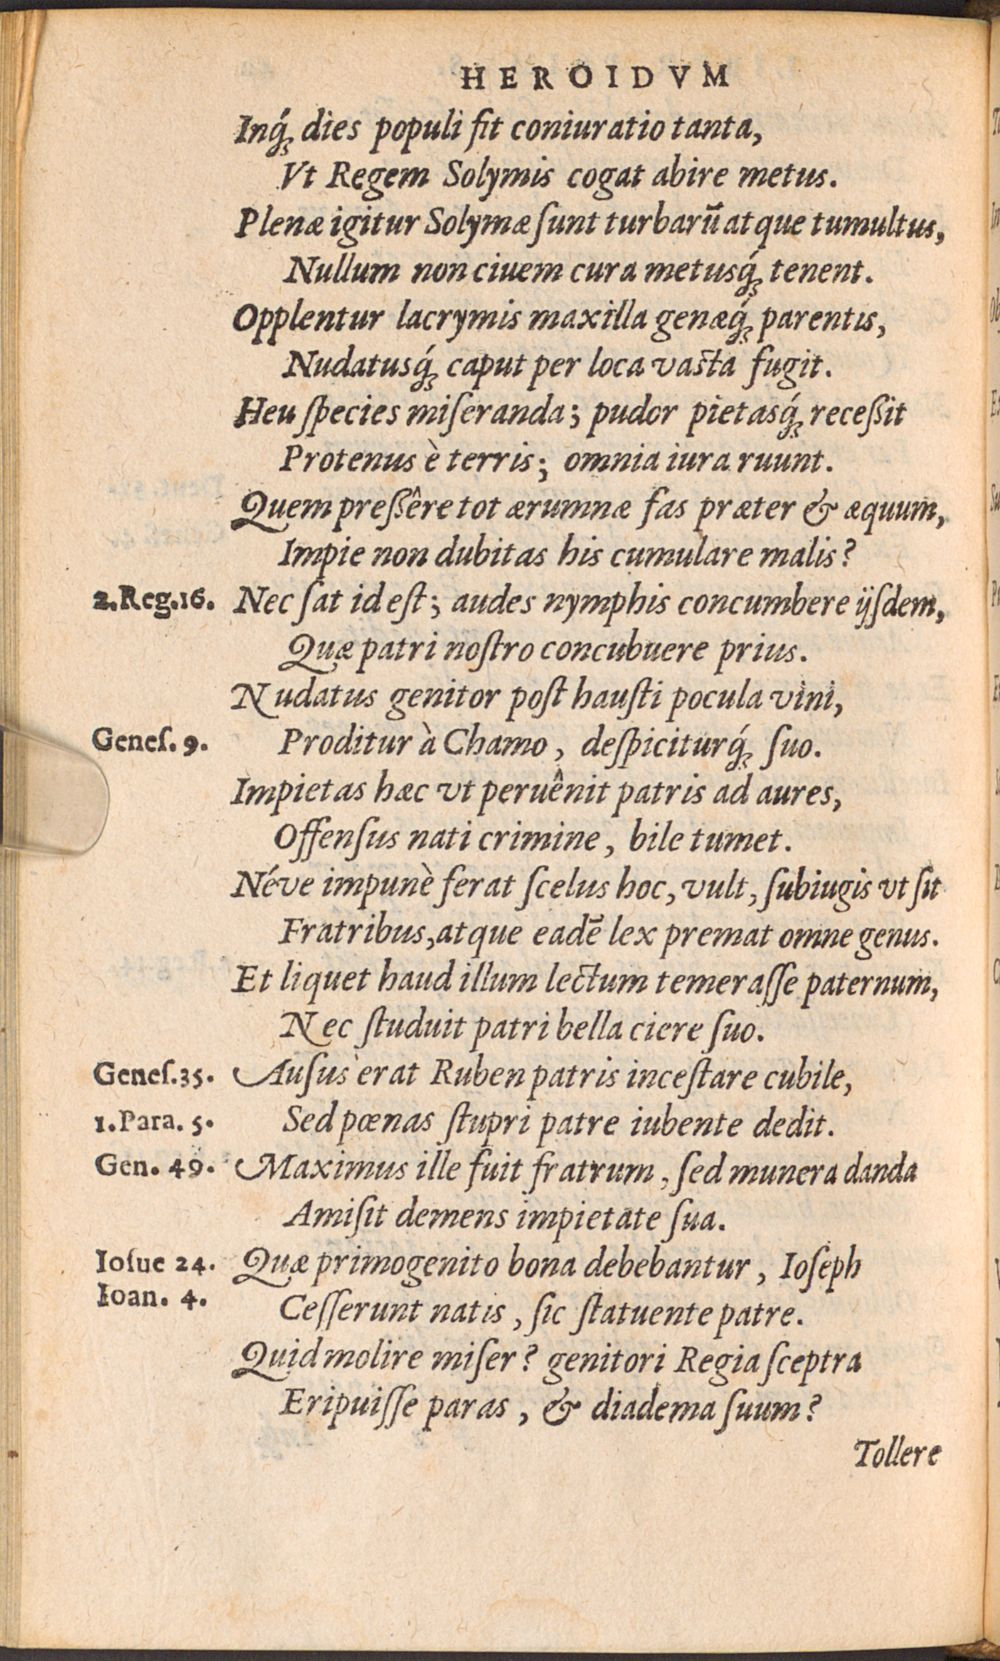 HEROIDVM
Inq́; dies populi fit coniuratio tanta,
Vt Regem Solymis cogat abire metus.
Plenæ igitur Solymæ ſunt turbarũ atque tumultus,
Nullum non ciuem cura metusq́; tenent.
Opplentur lacrymis maxilla genæq́; parentis,
Nudatusq́; caput per loca vasta fugit.
Heu ſpecies miſeranda; pudor pietasq́; receßit
Protenus è terris; omnia iura ruunt.
Quem preßêre tot ærumnæ fas præter & æquum,
Impie non dubitas his cumulare malis?
2.Reg.16. Nec ſat id eſt; audes nymphis concumbere ijſdem,
Quæ patri noſtro concubuere prius.
Nudatus genitor poſt hauſti pocula vini,
Geneſ. 9. Proditur à Chamo, deſpiciturq́; ſuo.
Impietas hæc vt peruênit patris ad aures,
Offenſus nati crimine, bile tumet.
Néve impunè ferat ſcelus hoc, vult, ſubiugis vt ſit
Fratribus, atque eadẽ lex premat omne genus.
Et liquet haud illum lectum temeraſſe paternum,
Nec ſtuduit patri bella ciere ſuo.
Geneſ.35. Auſus erat Ruben patris inceſtare cubile,
1.Para. 5. Sed pœnas ſtupri patre iubente dedit.
Gen. 49. Maximus ille fuit fratrum, ſed munera danda
Amiſit demens impietate ſua.
Ioſue 24. Quæ primogenito bona debebantur, Ioſeph
Ioan. 4. Ceſſerunt natis, ſic ſtatuente patre.
Quid molire miſer? genitori Regia ſceptra
Eripuiſſe paras, & diadema ſuum?
Tollere